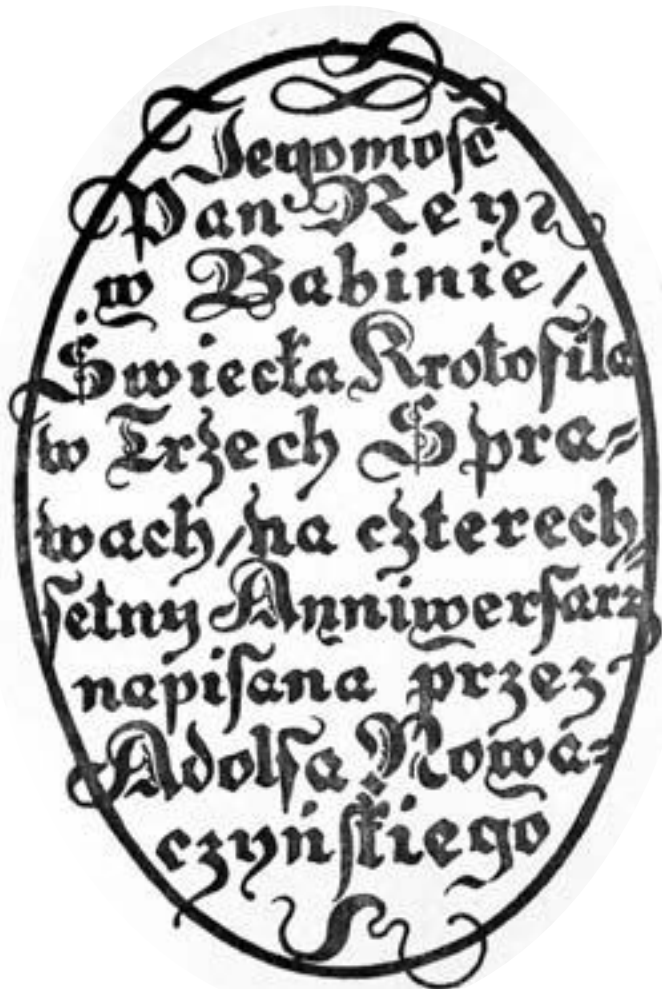 Jegomość
Pan Rey
w Babinie /
Świecka Krotofila
w Trzech Spra=
wach / na czterech=
setny Anniwersarz
napisana przez
Adolfa Nowa=
czyńskiego